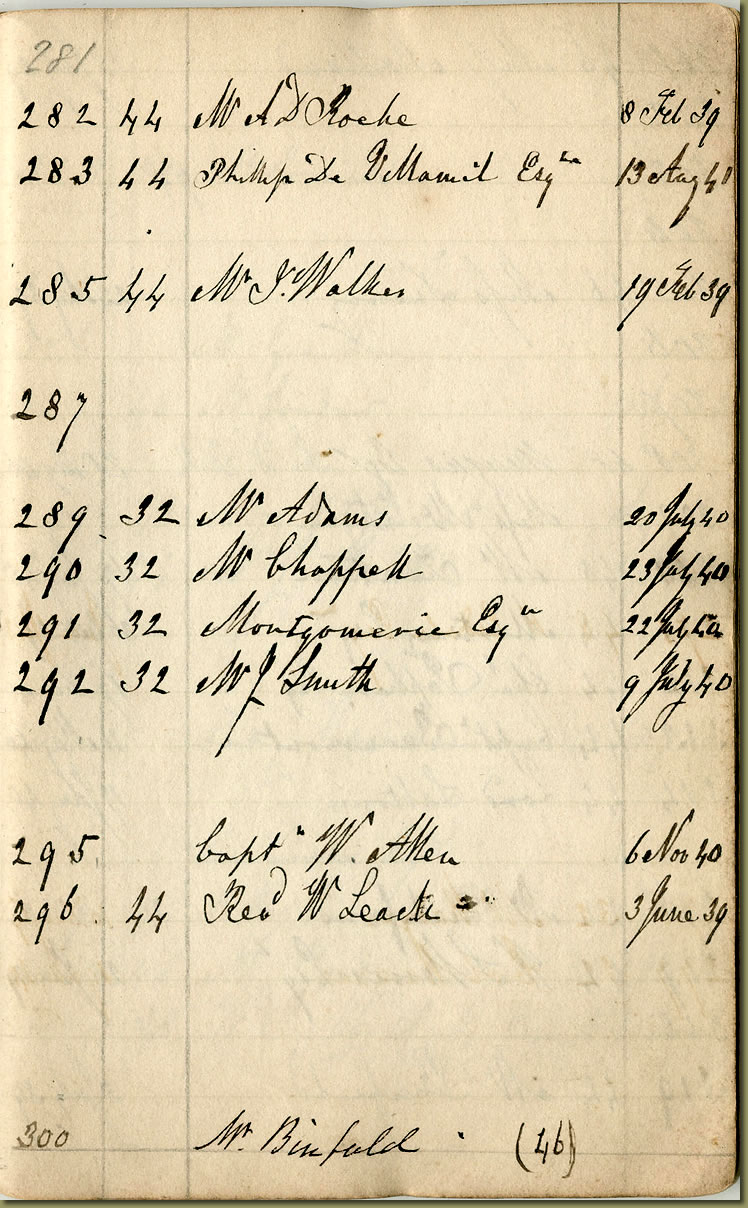 281
282 44 Mr A D Roche 8 Feb 39
283 44 Phillip De Villamil Esqre 13 Aug 40
285 44 Mr J. Walker 19 Feb 39
287
289 32 Mr Adams 20 July 40
290 32 Mr Chappell 23 July 40
291 32 Montgomerie Esqr 22 July 40
292 32 Mr J Smith 9 July 40
295 Captn W. Allen 6 Nov 40
296 44 Revd W Leach 3 June 39
300 Mr. Binfold (46)